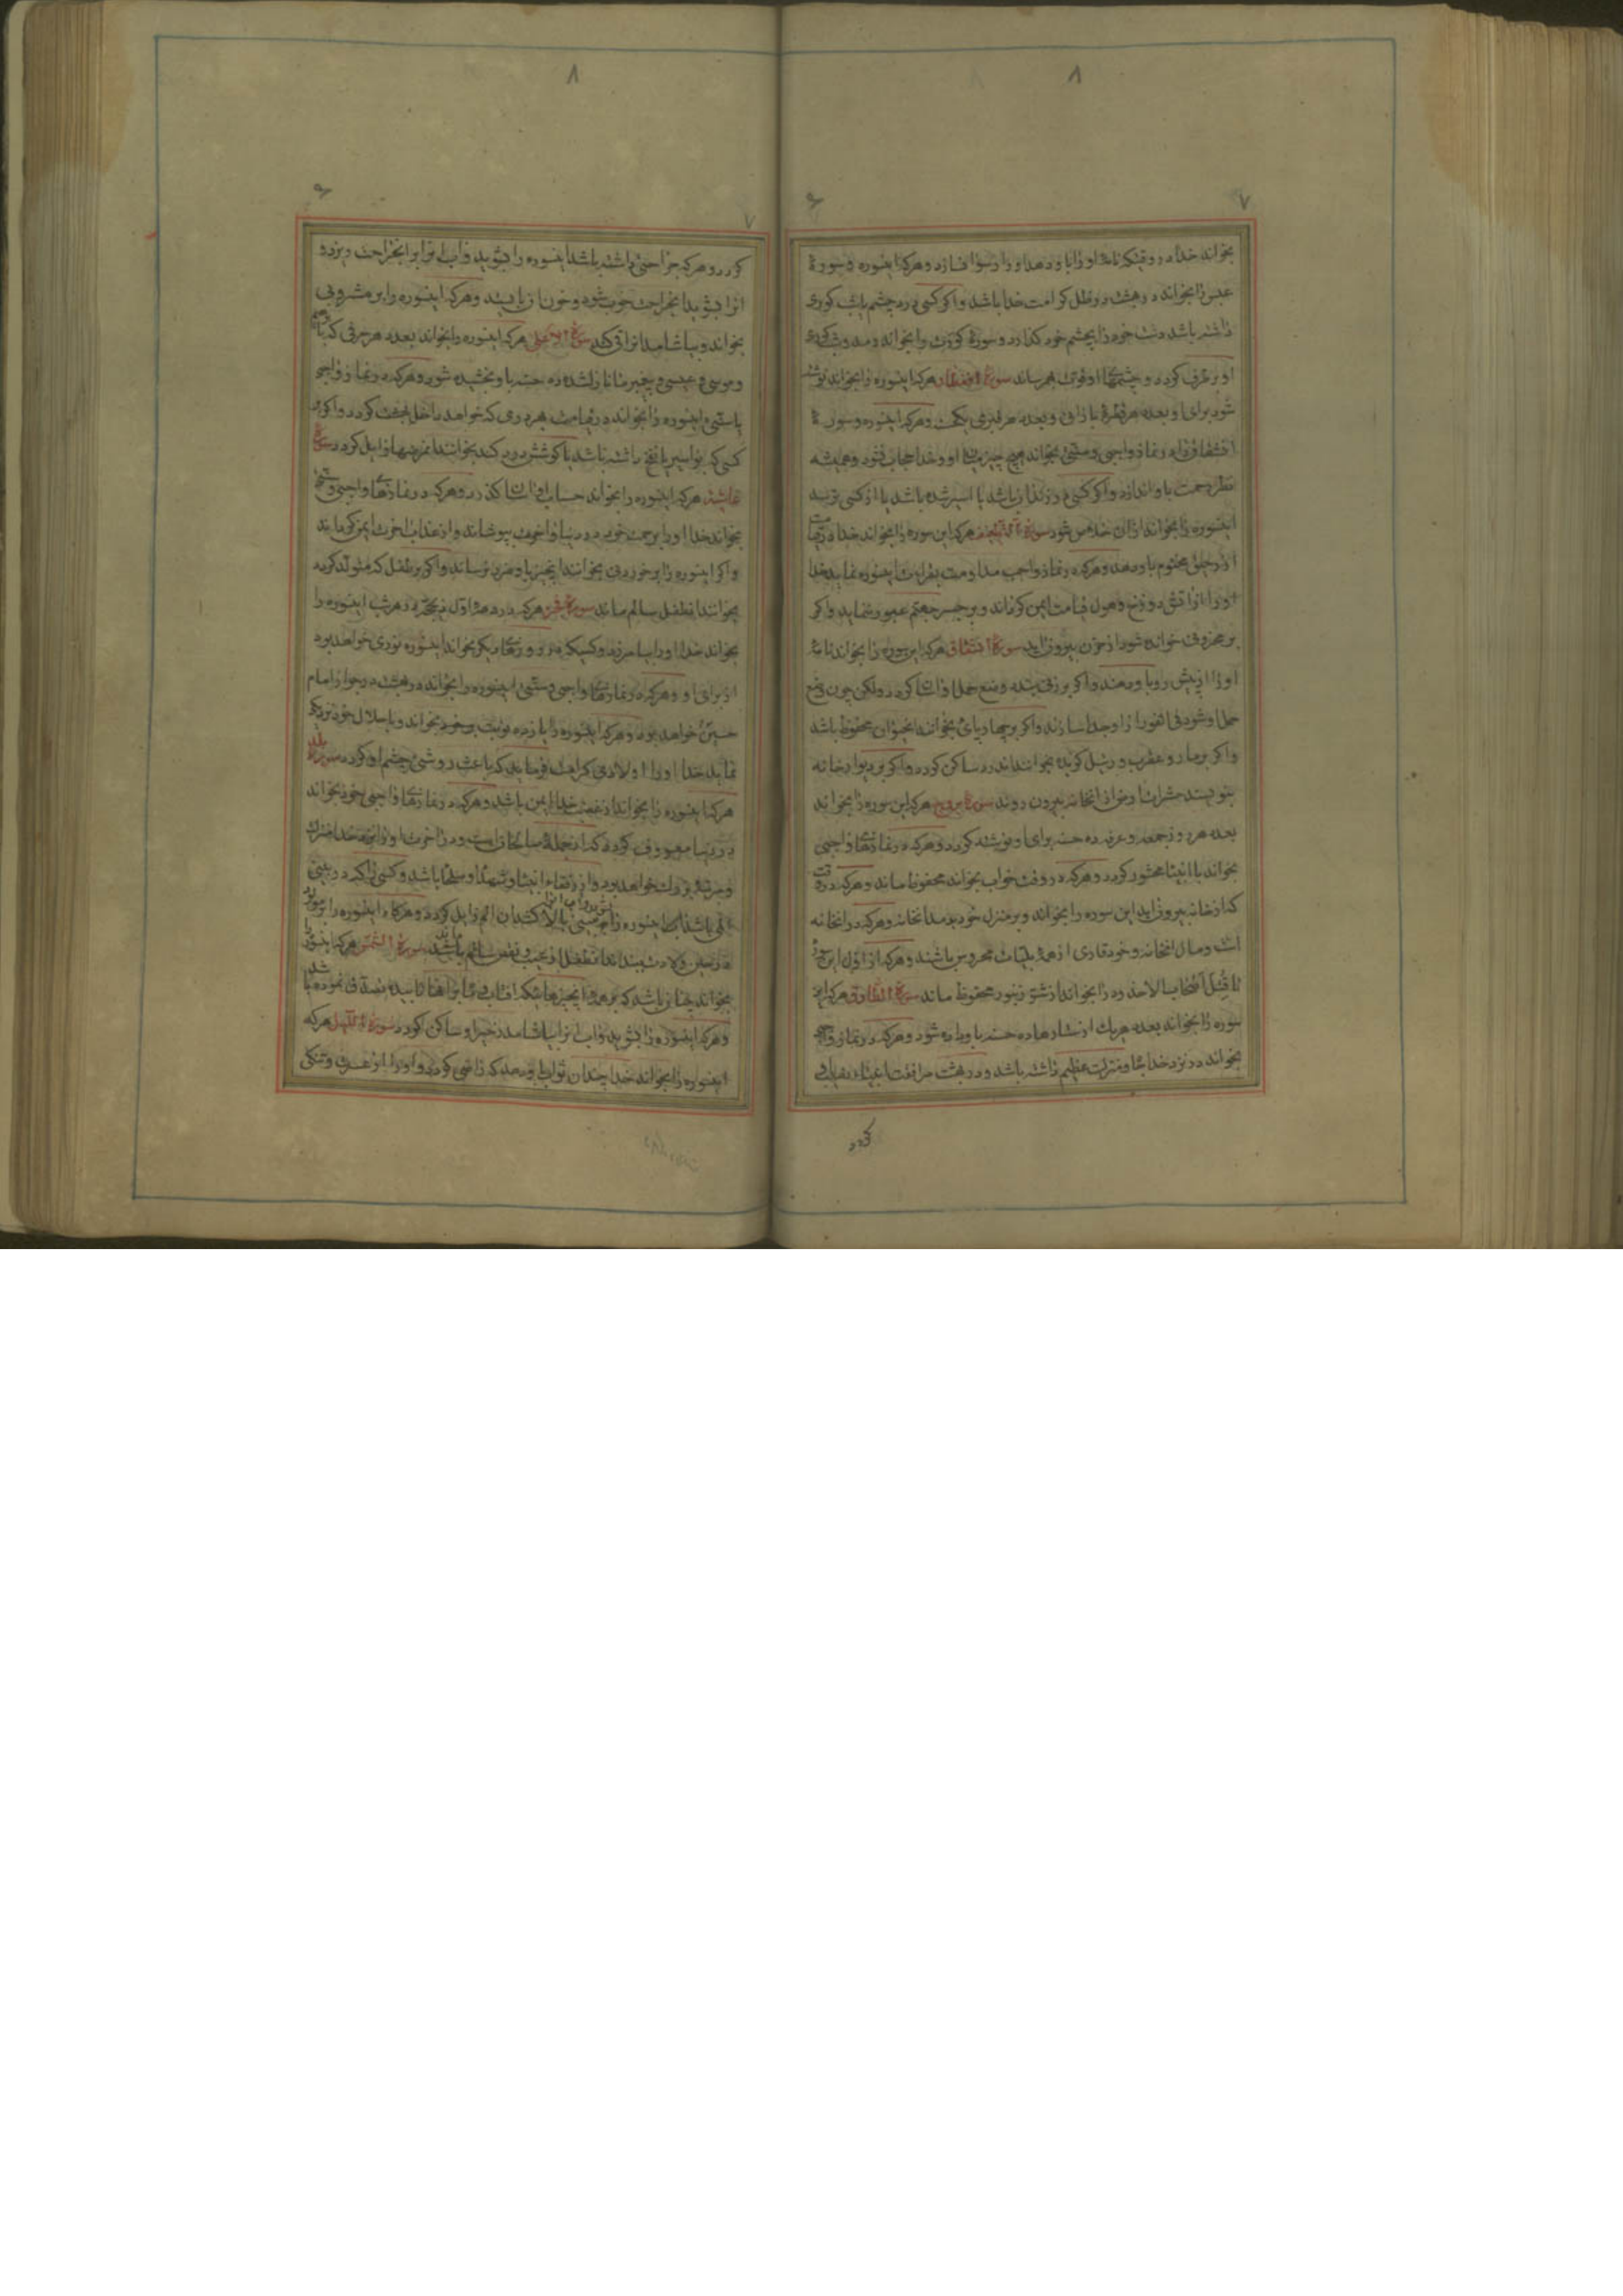 ۸
۷
بخواند خدا در وقتیکه نامهٔ او را باو دهد او را رسوا نسازد و هرکه اینسوره و سورهٔ
عبس را بخواند در بهشت در ظل کرامت خدا باشد و اگر کسی درد چشم یا شب کوری
داشته باشد دست خود را بچشم خود گذارد و سورهٔ کورت را بخواند رمد و شب کوری
او بر طرف گردد و چشمهای او قوت بهم رساند سورهٔ انفطار هرکه اینسوره را بخواند نوشته
شود برای او بعدد هر قطرهٔ بارانی و بعدد هر قبری یک حسنه و هرکه اینسوره و سورهٔ
انشقاق را در نماز واجبی و سنتی بخواند هیچ چیز میان او و خدا حجاب نشود و همیشه
نظر رحمت باو اندازد و اگر کسی در زندان باشد یا اسیر شده باشد یا از کسی ترسد
اینسوره را بخواند از آن خلاص شود سورهٔ هرکه این سوره را بخواند خدا در قیامت
از رحیق مختوم باو دهد و هرکه در نماز واجب مداومت بقرائت اینسوره نماید خدا
او را از آتش دوزخ و هول قیامت ایمن گرداند و بر جسر جهنم عبور ننماید و اگر
بر مخزونی خوانده شود از حزن بیرون آید سورهٔ انشقاق هرکه این سوره را بخواند نامهٔ
او را از پیش رو باو دهند و اگر بر زنی بندند وضع حمل او آسان گردد ولکن چون وضع
حمل او شود فی الفور از او جدا سازند و اگر بر چهارپای بخوانند آنحیوان محفوظ باشد
و اگر بر مار و عقرب و رتیل گزیده بخوانند درد ساکن گردد و اگر بر دیوار خانه
بنویسند حشرات از آنخانه بیرون روند سورهٔ بروج هرکه این سوره را بخواند
بعدد هر روز جمعه و عرفه ده حسنه برای او نوشته گردد و هرکه در نمازهای واجبی
بخواند با انبیا محشور گردد و هرکه در وقت خواب بخواند محفوظ ماند و هرکه در وقت
که از خانه بیرون آید این سوره را بخواند و بر منزل خود بدمد آنخانه و هرکه در آنخانه
است و مال آنخانه و خود قاری از همهٔ بلیات محروس باشند و هرکه از اول این سوره
تا قتل اصحاب الاخدود را بخواند از شر زنبور محفوظ ماند سورهٔ الطارق هرکه این
سوره را بخواند بعدد هر یک از ستارها ده حسنه باو داده شود و هرکه در نماز واجبی
بخواند در نزد خدا جاه و منزلت عظیم داشته باشد و در بهشت مرافقت انبیاء
گردد
۸
۷
گردد و هرکه جراحتی داشته باشد اینسوره را بشوید و آب آنرا بر آنجراحت ریزد و
آنرا بشوید آنجراحت خوب شود و خون از آن نیاید و هرکه اینسوره را بر مشروبی
بخواند و بیاشامد از قی کند سورهٔ الاعلی هرکه اینسوره را بخواند بعدد هر حرفی که با
و موسی و عیسی و پیغمبر ما نازل شده ده حسنه باو بخشیده شود و هرکه در نماز واجبی
یا سنتی اینسوره را بخواند در قیامت بهر دری که خواهد داخل بهشت گردد و اگر بر
کسی که بواسیر داشته باشد یا گوشش درد کند بخوانند آن مرضها زایل گردد سورهٔ
غاشیه هرکه اینسوره را بخواند حساب او آسان گذرد و هرکه در نمازهای واجبی و سنتی
بخواند خدا او را برحمت خود در دنیا و آخرت بپوشاند و از عذاب آخرت ایمن گرداند
و اگر اینسوره را بر خوردنی بخوانند آنچیز باو ضرر نرساند و اگر بر طفل که متولد گردد
بخوانند آنطفل سالم ماند سورهٔ فجر هرکه در دههٔ اول ذیحجه در هر شب اینسوره را
بخواند خدا او را بیامرزد و کسیکه در روزهای دیگر بخواند اینسوره نوری خواهد بود
از برای او و هرکه در نمازهای واجبی و سنتی اینسوره را بخواند در بهشت در جوار امام
حسین خواهد بود و هرکه اینسوره را یازده نوبت بر خود بخواند و با حلال خود نزدیکی
نماید خدا او را اولادی کرامت فرماید که باعث روشنی چشم او گردد سورهٔ بلد
هرکه اینسوره را بخواند از غضب خدا ایمن باشد و هرکه در نمازهای واجبی خود بخواند
در دنیا معروف گردد که از جملهٔ صالحان است و در آخرت او را نزد خدا منزلت
و مرتبهٔ بزرگ خواهد بود و از رفقاء انبیا و شهدا و صلحا باشد و کسی را که در بینی
اینسوره را بینی بالا کشد آن الم زایل گردد و هرگاه اینسوره را بر مولود
در حین ولادت ببندند آنطفل از عیب و نقص سالم ماند سورهٔ الشمس هرکه اینسوره را
بخواند چنان باشد که بر هر آنچیزهائیکه آفتاب و ماه بر آنها تابیده تصدق نموده باشد
و هرکه اینسوره را بشوید و آب آنرا بیاشامد زحیر او ساکن گردد سورهٔ اللیل هرکه
اینسوره را بخواند خدا چندان ثواب باو دهد که راضی گردد و او را از عسرت و تنگی